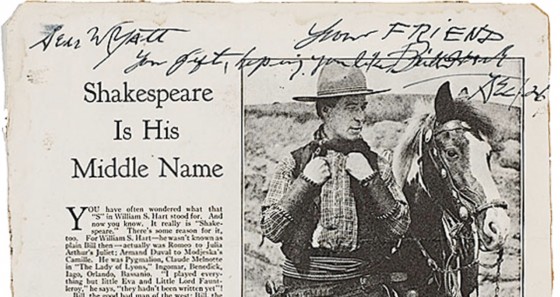 Dear Wyatt
Your FRIEND
hoping you like Bill Hart
Shakespeare
Is His
Middle Name
YOU have often wondered what that
"S" in William S. Hart stood for. And
now you know. It really is "Shake-
speare." There's some reason for it,
too. For William S. Hart—he wasn't known as
plain Bill then—actually was Romeo to Julia
Arthur's Juliet; Armand Duval to Modjeska's
Camille. He was Pygmalion, Claude Melnotte
in "The Lady of Lyons," Ingomar, Benedick,
Iago, Orlando, Bassanio. "I played every-
thing but little Eva and Little Lord Faunt-
leroy," he says, "they hadn't been written yet"!
Bill, the good bad man of the west; Bill, the